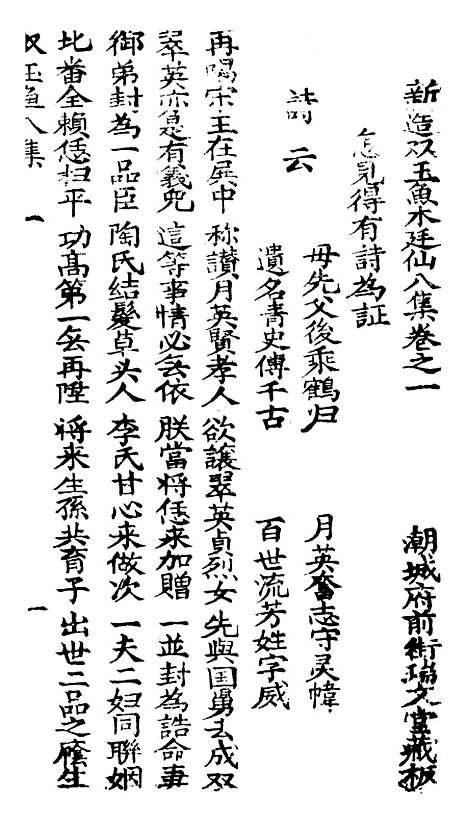 新造双玉魚木廷仙八集卷之一 潮城府前街瑞文堂藏板
怎見得有詩為証
詩云
毋先父後乘鶴归 月英奮志守灵幃
遺名青史傳千古 百世流芳姓字威
再唱宋王在展中 称讃月英賢孝人 欲讓翠英貞烈女 先與国舅去成双
翠英亦是有義兒 這等事情必多依 朕當將恁來加贈 一並封為誥命妻
御弟封為一品臣 陶氏結髮草头人 李氏甘心來做次 一夫二妇同聯姻
北番全賴恁扫平 功高第一無再陞 将来生孫共育子 出世二品之廕生
双玉魚八集 一 一